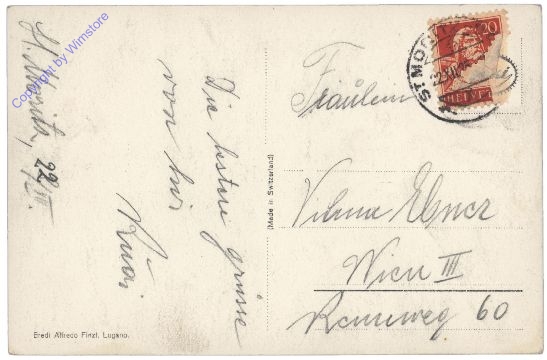 Copyright by Wimstore
St. Moritz, 22/VII.
Die besten grüsse
von hier
(Made in Switzerland)
Eredi Alfredo Finzi, Lugano.
20
HELVETIA
ST. MORITZ
Fräulein
Vilma Ebner
Wien III
Rennweg 60